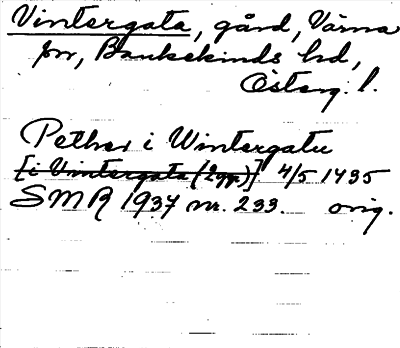 Vintergata, gård, Värna
sn, Bankekinds hd,
Österg. l.
Pether i Wintergatu
[i Vintergata (2ggr)] 4/5 1435
SMR 1937 nr. 233. orig.